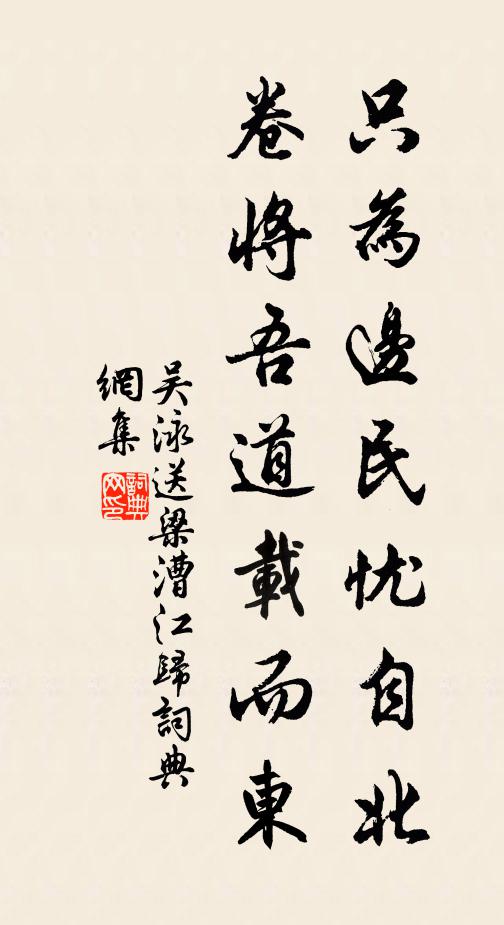 只為邊民忧自北
卷將吾道載而東
吴泳送梁漕江歸詞典
網集
詞典
网印